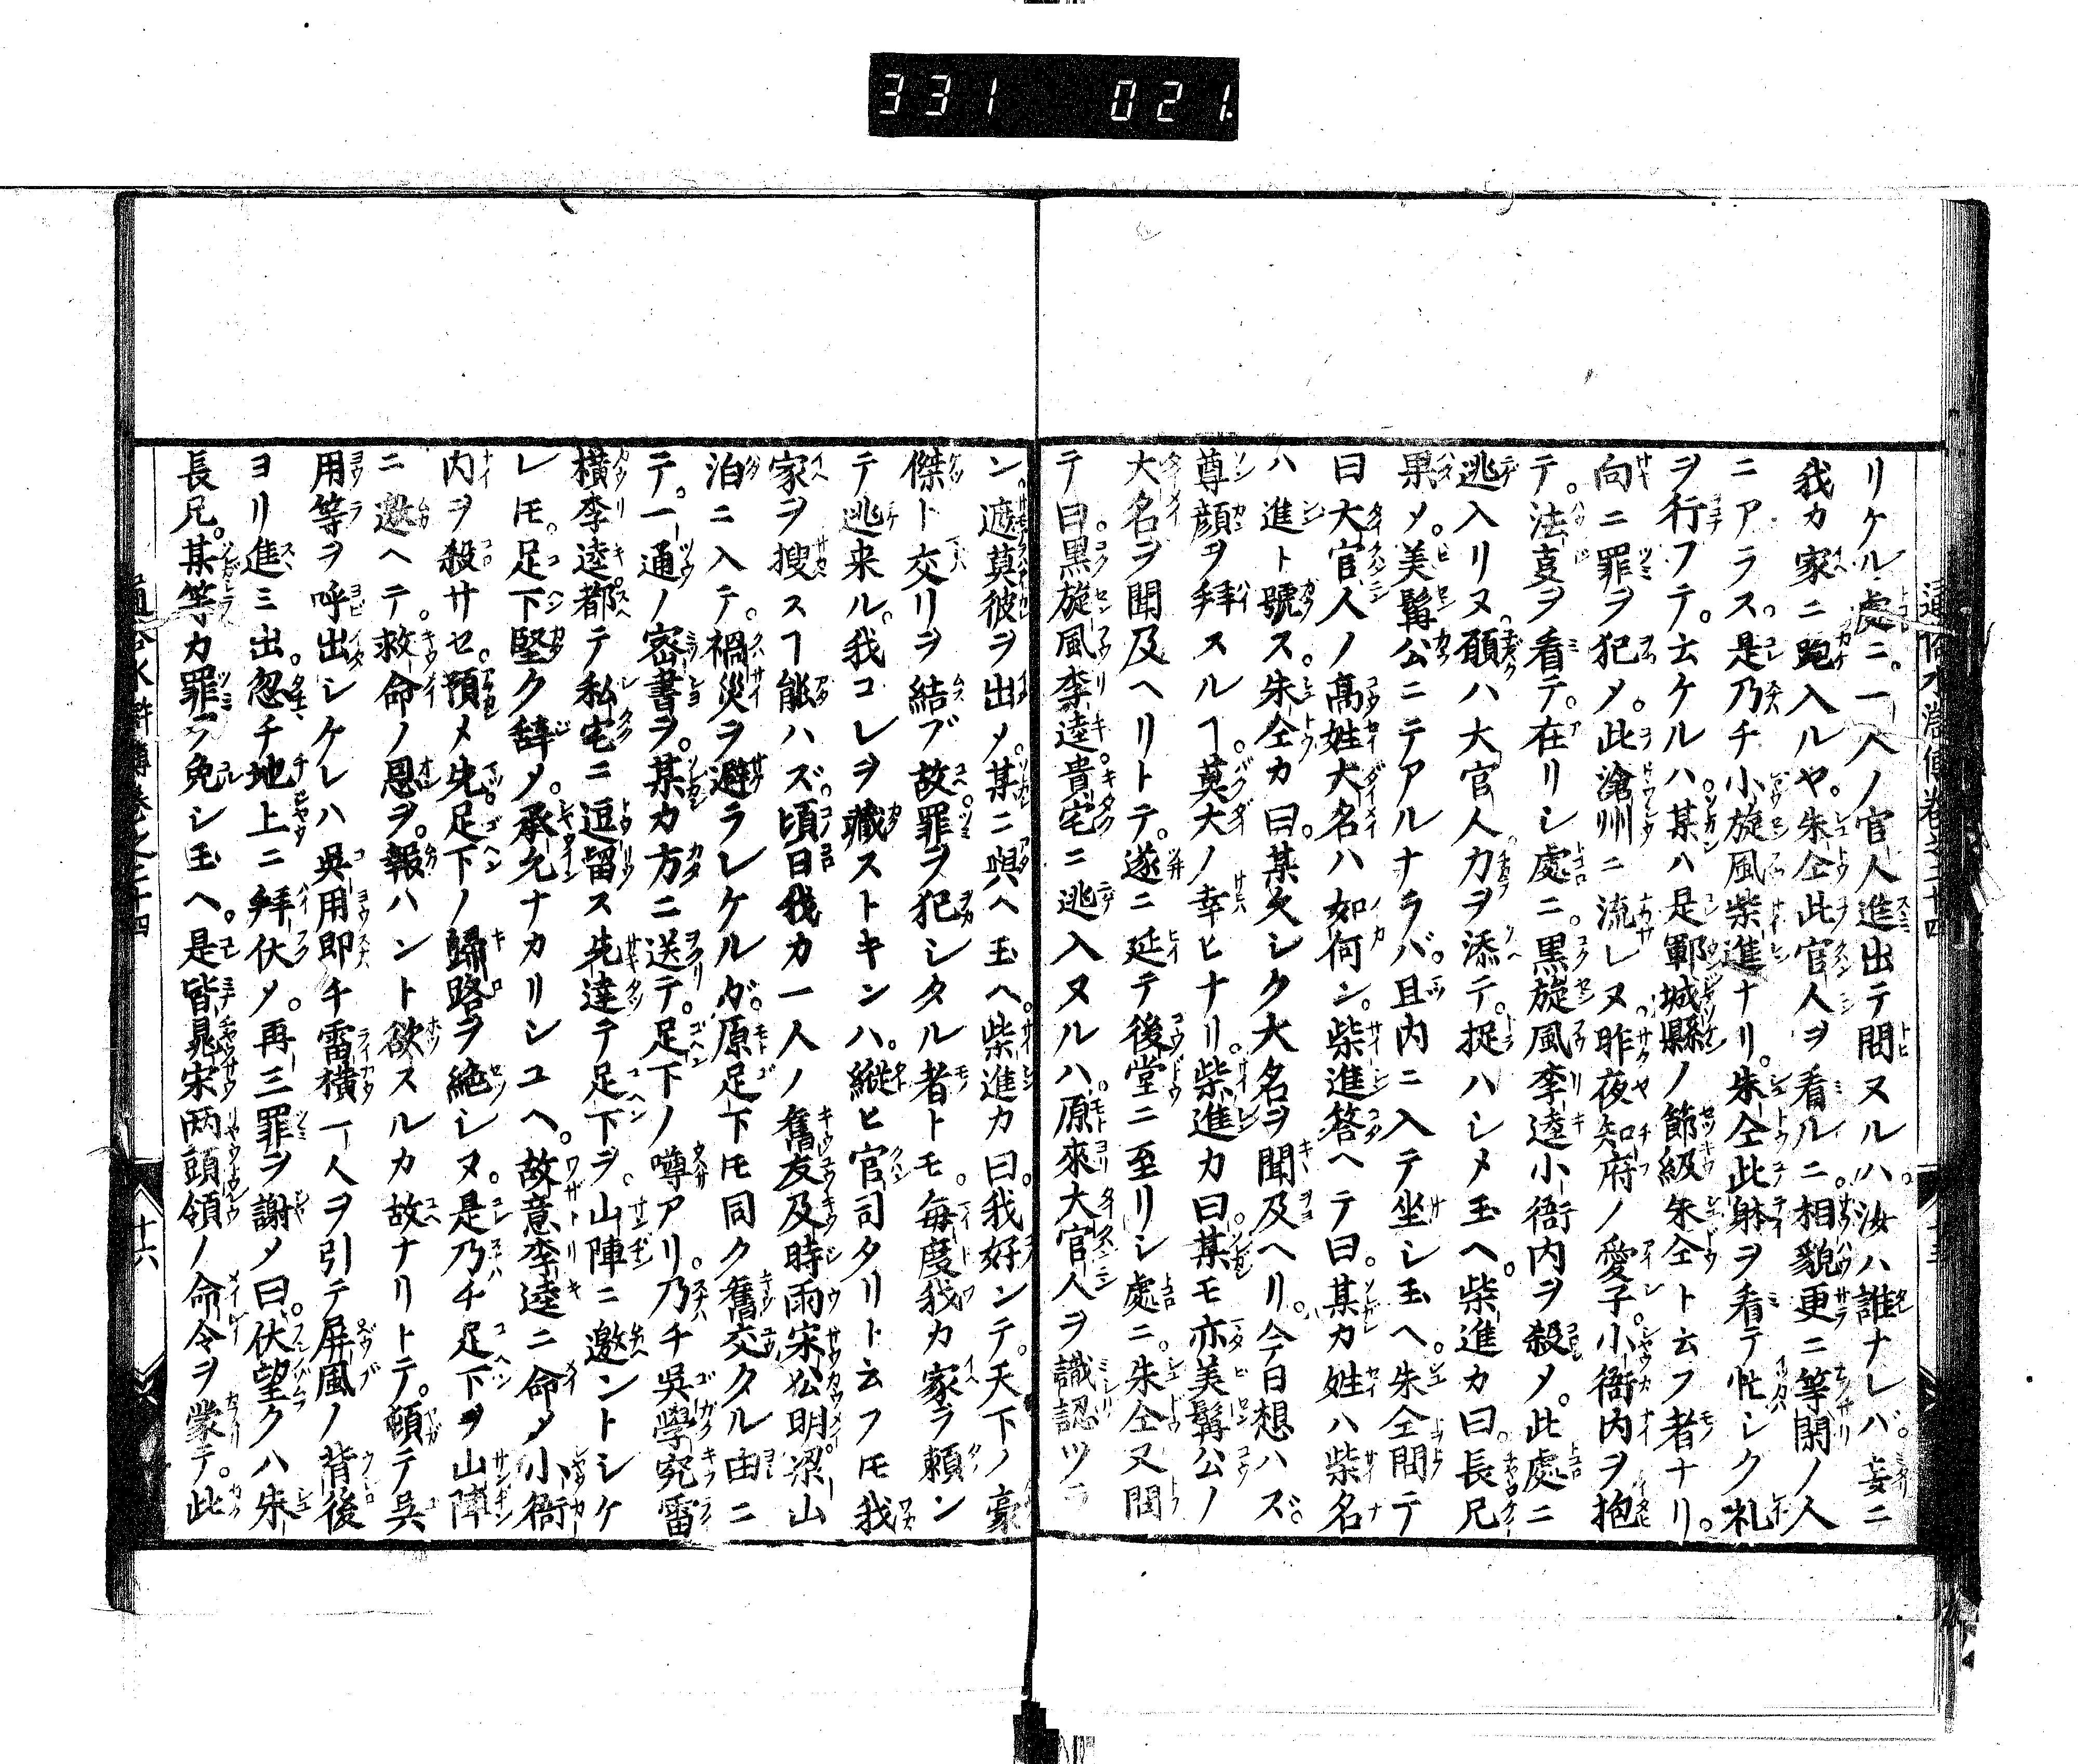 331 021.
通俗水滸傳卷之二十四
リケル處ニ。一人ノ官人進出テ問ヌルハ。汝ハ誰ナレバ。妄ニ
我カ家ニ跑入ルヤ。朱仝此官人ヲ看ルニ。相貌更ニ等閑ノ人
ニアラス。是乃チ小旋風柴進ナリ。朱仝此躰ヲ看テ忙シク礼
ヲ行フテ。云ケルハ。某ハ是鄆城縣ノ節級朱仝ト云フ者ナリ。
向ニ罪ヲ犯メ。此滄州ニ流レヌ。昨夜知府ノ愛子。小衙内ヲ抱
テ。法㕝ヲ看テ。在リシ處ニ。黒旋風李逵小衙内ヲ殺メ。此處ニ
逃入リヌ。願ハ大官人力ヲ添テ。捉ハシメ玉ヘ。柴進カ曰。長兄
果メ。美髯公ニテアルナラバ。且内ニ入テ坐シ玉ヘ。朱仝問テ
曰大官人ノ高姓大名ハ如何ン。柴進答ヘテ曰。某カ姓ハ柴名
ハ進ト號ス。朱仝カ曰。某久シク大名ヲ聞及ヘリ。今日想ハズ。
尊顔ヲ拜スルヿ。莫大ノ幸ヒナリ。柴進カ曰某モ亦美髯公ノ
大名ヲ聞及ヘリトテ。遂ニ延テ後堂ニ至リシ處ニ。朱仝又問
テ曰。黒旋風李逵。貴宅ニ逃入ヌルハ。原來大官人ヲ識認ツラ
ン。遮莫彼ヲ出メ。某ニ與ヘ玉ヘ。柴進カ曰。我好ンテ。天下ノ豪
傑ト交リヲ結ブ故。罪ヲ犯シタル者トモ。毎度我カ家ヲ頼ン
テ逃来ル。我コレヲ藏ストキンハ。縱ヒ官司タリト云フモ我
家ヲ搜スヿ能ハズ。頃日我カ一人ノ舊友及時雨宋公明梁山
泊ニ入テ。禍災ヲ避ラレケルガ。原足下モ同ク舊交タル由ニ
テ。一通ノ密書ヲ。某カ方ニ送テ。足下ノ噂アリ。乃チ吳學究雷
横李逵都テ私宅ニ逗留ス先達テ足下ヲ。山陣ニ邀ントシケ
レ𪜈。足下堅ク辞メ。承允ナカリシユヘ。故意李逵ニ命メ小衙
内ヲ殺サセ。預メ先足下ノ歸路ヲ絶シヌ。是乃チ足下ヲ山陣
ニ邀ヘテ。救命ノ恩ヲ。報ハント欲スルカ故ナリトテ。頓テ吳
用等ヲ呼出シケレハ吳用即チ雷横一人ヲ引テ屏風ノ背後
ヨリ進ミ出。忽チ地上ニ拜伏メ。再三罪ヲ謝メ曰。伏望クハ朱
長兄。某等カ罪ヲ免シ玉ヘ。是皆晁宋两頭領ノ命令ヲ蒙テ。此
通俗水滸傳卷之二十四
十六